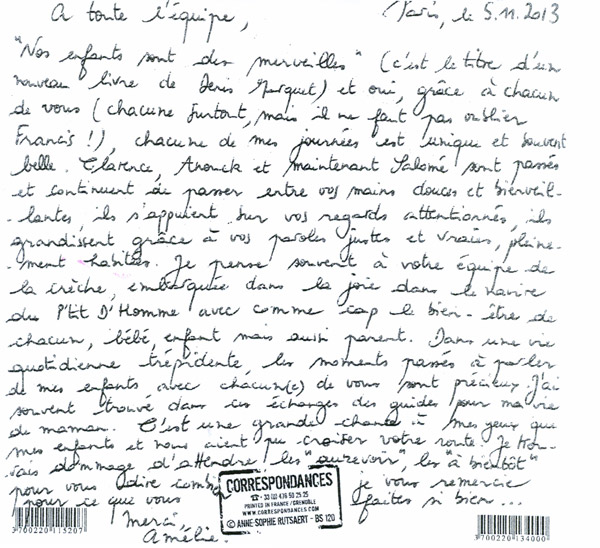 A toute l'équipe,
Paris, le 5.11.2013
"Nos enfants sont des merveilles" (c'est le titre d'un
nouveau livre de Denis Marquet) et oui, grâce à chacun
de vous (chacune surtout, mais il ne faut pas oublier
Francis !), chacune de mes journées est unique et souvent
belle. Clarence, Anouck et maintenant Salomé sont passés
et continuent de passer entre vos mains douces et bienveil-
-lantes, ils s'appuient sur vos regards attentionnés, ils
grandissent grâce à vos paroles justes et vraies, pleine-
-ment habitées. Je pense souvent à votre équipe de
la crèche, embarquée dans la joie dans le navire
du P'tit D'Homme avec comme cap le bien-être de
chacun, bébé, enfant mais aussi parent. Dans une vie
quotidienne trépidente, les moments passés à parler
de mes enfants avec chacun(e) de vous sont précieux. J'ai
souvent trouvé dans ces échanges des guides pour ma vie
de maman. C'est une grande chance à mes yeux que
mes enfants et nous aient pu croiser votre route. Je trou-
vais dommage d'attendre les "au revoir", les "à bientôt"
pour vous dire combien je vous remercie
pour ce que vous faites si bien...
Merci,
Amélie.
CORRESPONDANCES
☎ - 33 (0)4 436 50 25 25
PRINTED IN FRANCE / GRENOBLE
WWW.CORRESPONDANCES.COM
© ANNE SOPHIE RUTSAERT - BS 120
3700220115207
3700220134000